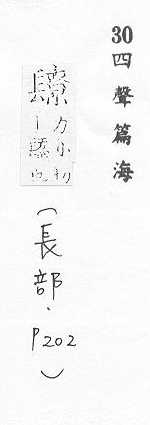 30四聲篇海
镽
力小切
(長部.P202)